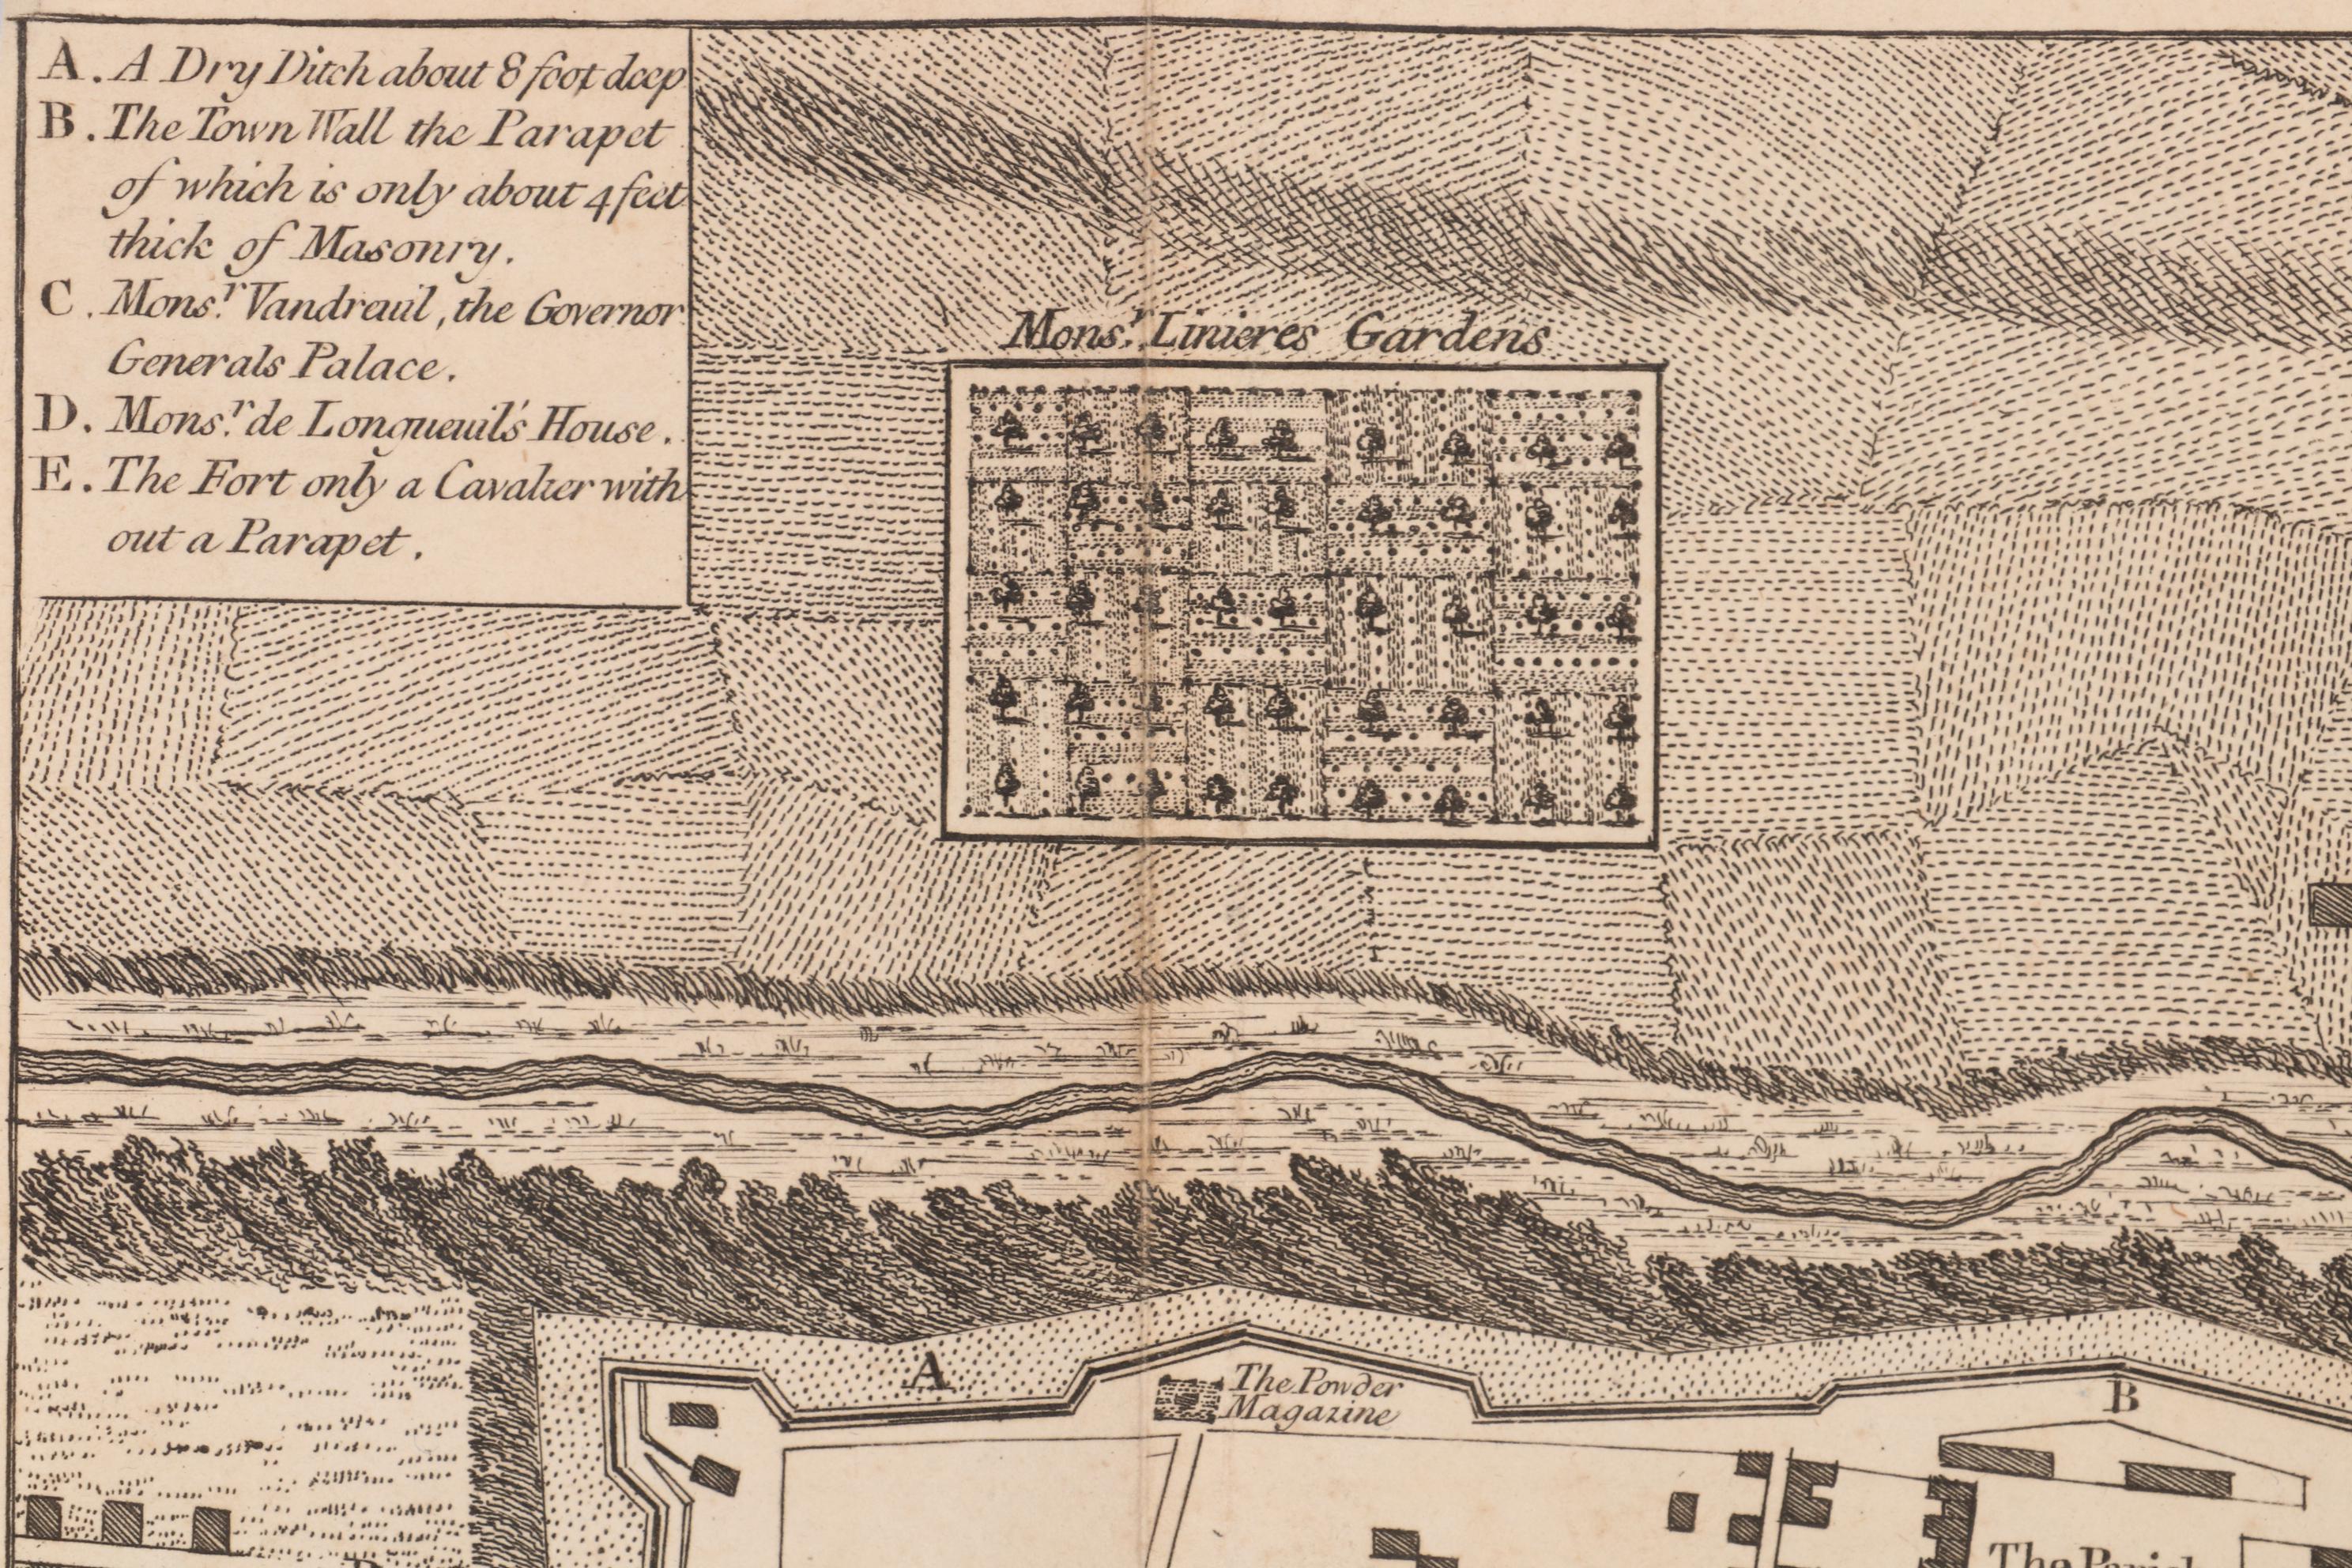 A. A Dry Ditch about 8 foot deep
B. The Town Wall the Parapet
of which is only about 4 feet
thick of Masonry.
C. Monsr. Vandreuil, the Governor
Generals Palace.
D. Monsr. de Longueuil's House.
E. The Fort only a Cavalier with
out a Parapet.
Monsr. Linieres Gardens
A
The Powder
Magazine
B
The Parish